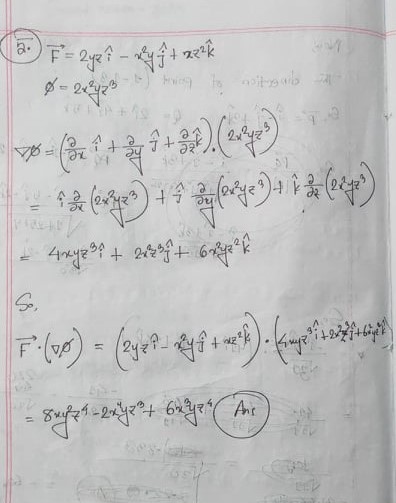 2. F⃗ = 2yz î − x²y ĵ + xz² k̂
Ø = 2x²yz³
∇Ø = (∂/∂x î + ∂/∂y ĵ + ∂/∂z k̂) . (2x²yz³)
= î ∂/∂x (2x²yz³) + ĵ ∂/∂y (2x²yz³) + k̂ ∂/∂z (2x²yz³)
= 4xyz³ î + 2x²z³ ĵ + 6x²yz² k̂
So,
F⃗ · (∇Ø) = (2yz î − x²y ĵ + xz² k̂) · (4xyz³ î + 2x²z³ ĵ + 6x²yz² k̂)
= 8xy²z⁴ − 2x⁴yz³ + 6x³yz⁴ Ans